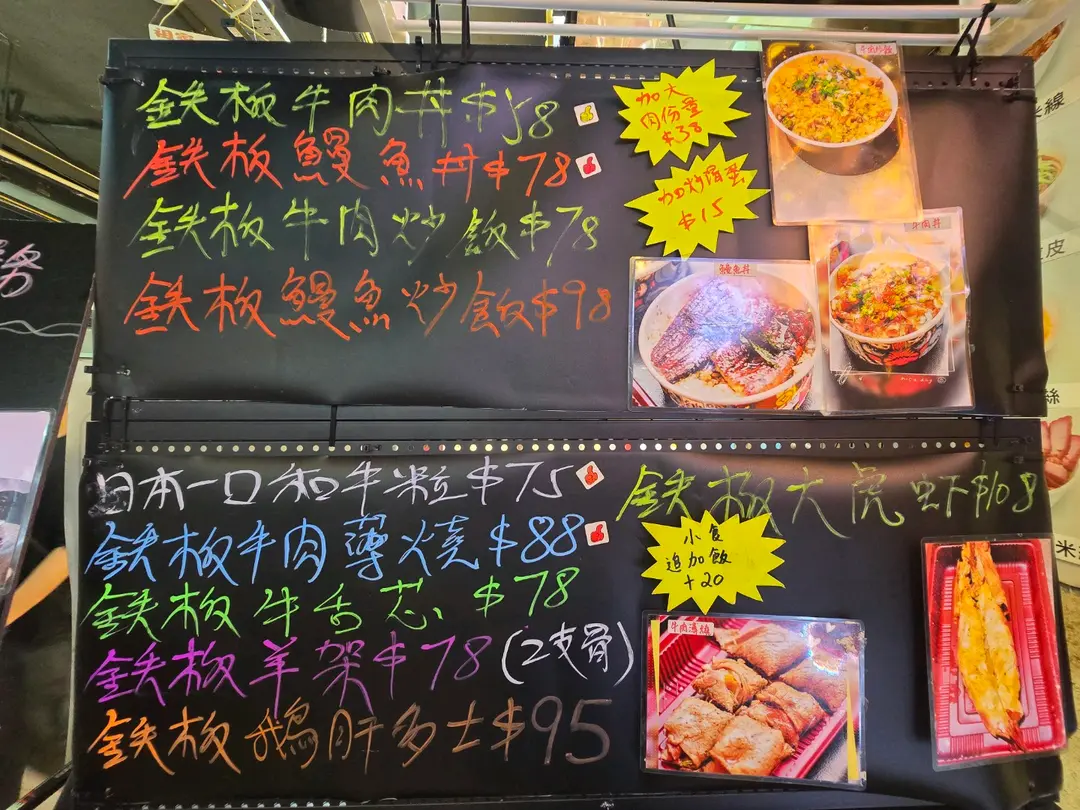 鉄板牛肉丼$58
鉄板鰻魚丼$78
鉄板牛肉炒飯$78
鉄板鰻魚炒飯$98
加大
肉份量
$38
加炒滑蛋
$15
牛肉炒飯
牛肉丼
鰻魚丼
日本一口和牛粒$75
鉄板牛肉薄燒$88
鉄板牛舌芯$78
鉄板羊架$78(2支骨)
鉄板鵝肝多士$95
鉄板大虎蝦$108
小食
追加飯
+20
牛肉薄燒
線
皮
絲
米